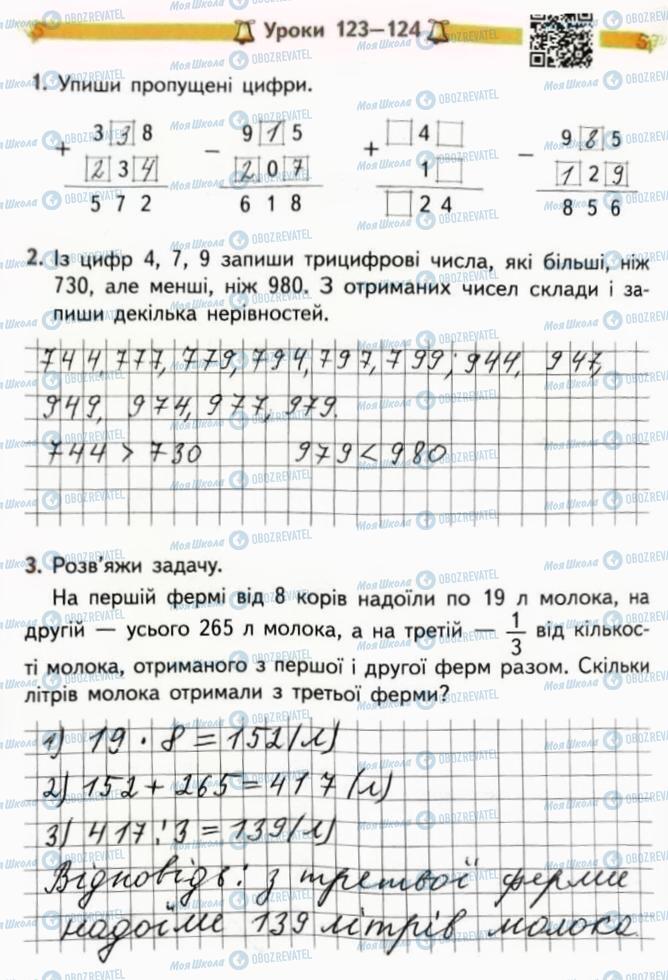 Уроки 123—124
1. Упиши пропущені цифри.
3 3 8   9 1 5   4   9 8 5
+   −   +   −
2 3 4   2 0 7   1   1 2 9
5 7 2   6 1 8   2 4   8 5 6
2. Із цифр 4, 7, 9 запиши трицифрові числа, які більші, ніж
730, але менші, ніж 980. З отриманих чисел склади і за-
пиши декілька нерівностей.
744, 777, 779, 794, 797, 799; 944, 947,
949, 974, 977, 979.
744 > 730   979 < 980
3. Розв'яжи задачу.
На першій фермі від 8 корів надоїли по 19 л молока, на
другій — усього 265 л молока, а на третій — 1/3 від кількос-
ті молока, отриманого з першої і другої ферм разом. Скільки
літрів молока отримали з третьої ферми?
1) 19 · 8 = 152 (л)
2) 152 + 265 = 417 (л)
3) 417 : 3 = 139 (л)
Відповідь: з третьої ферми
надоїли 139 літрів молока